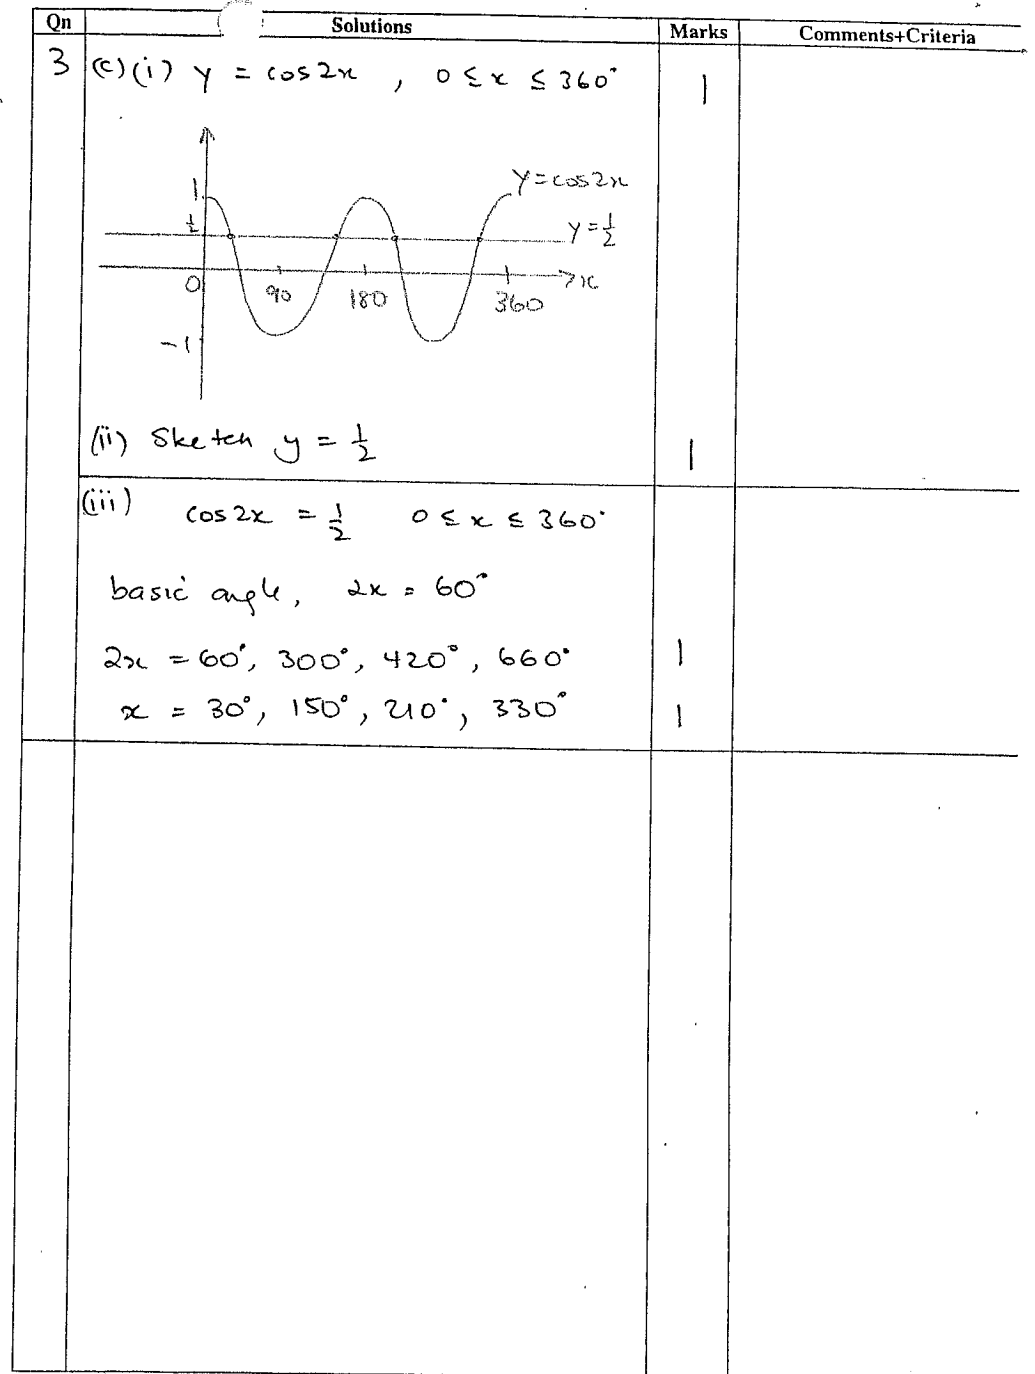 Qn Solutions Marks Comments+Criteria
3 (c) (i) y = cos2x , 0 ≤ x ≤ 360° 1
y=cos2x
1
½
y=½
0 90 180 360 x
-1
(ii) Sketch y = ½ 1
(iii) cos 2x = ½ 0 ≤ x ≤ 360°
basic angle, 2x = 60°
2x = 60°, 300°, 420°, 660° 1
x = 30°, 150°, 210°, 330° 1